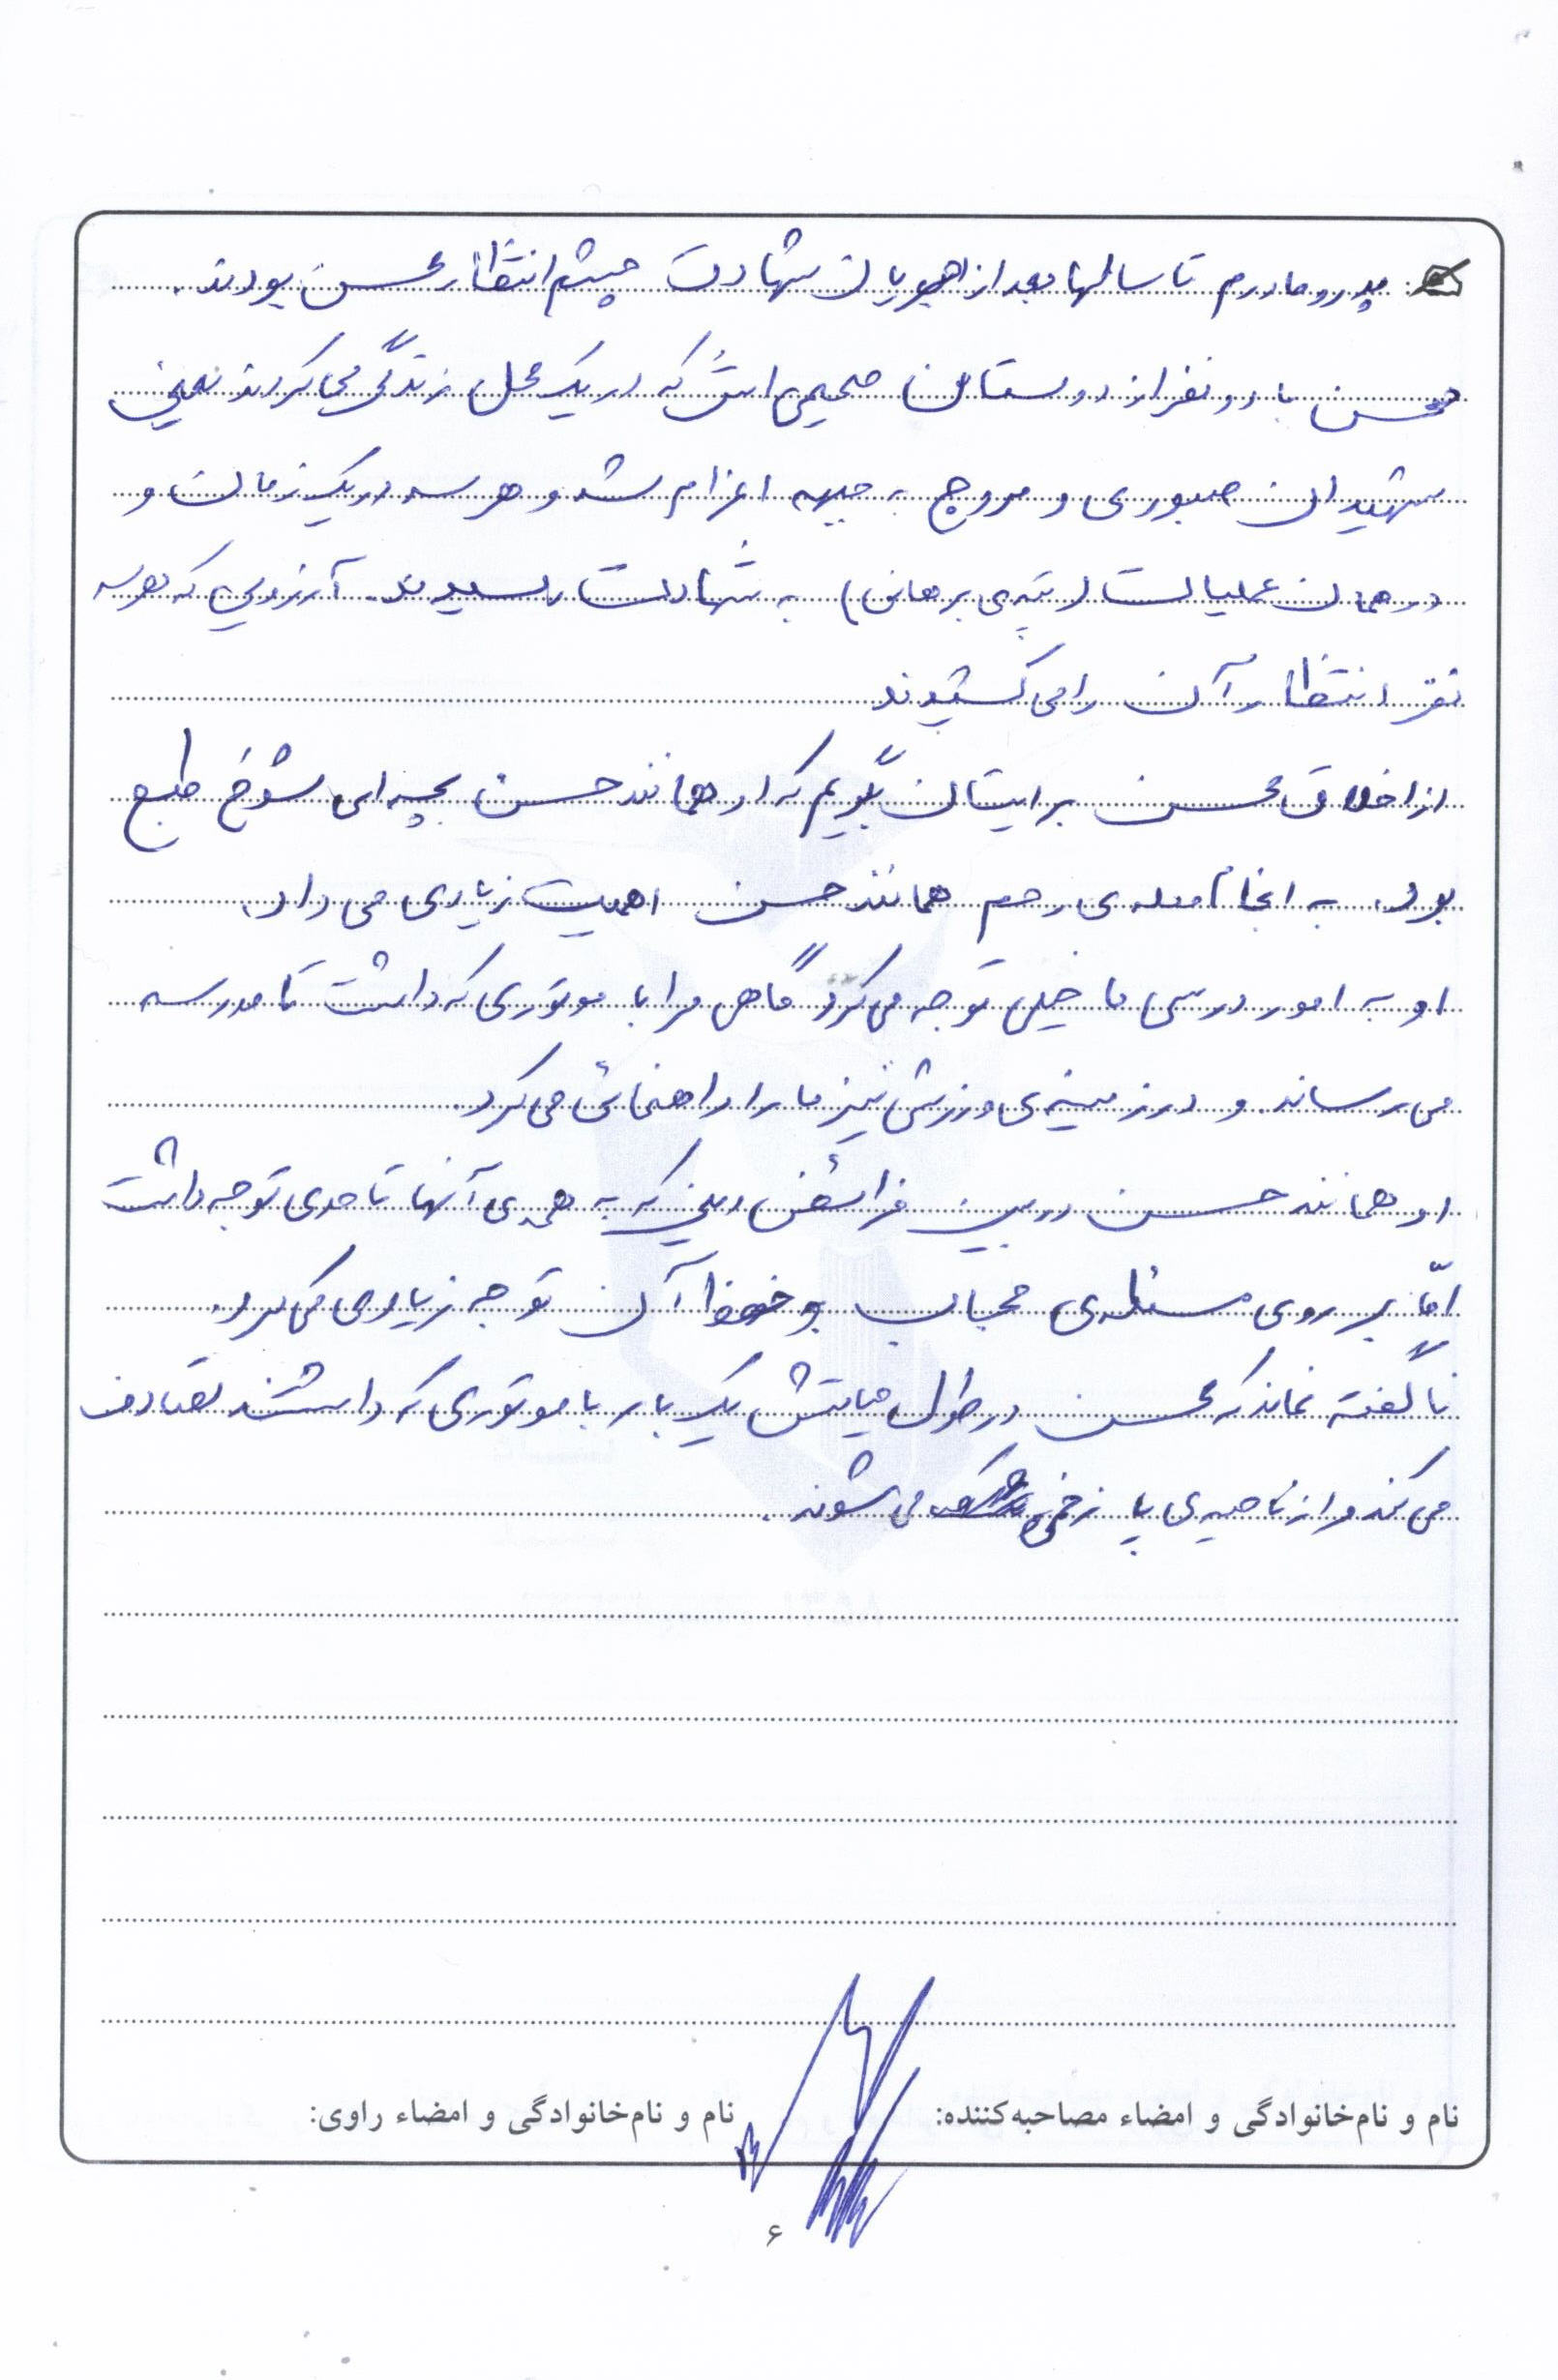 پدر و مادرم تا سالها بعد از جریان شهادت چشم انتظار محسن بودند.
محسن با دو نفر از دوستان صمیمی اش که در یک محل زندگی می کردند یعنی
شهیدان صبوری و مروج به جبهه اعزام شد و هر سه در یک زمان و
در همان عملیات (تپه ی برهانی) به شهادت رسیدند. آرزویی که هر سه
نفر انتظار آن را می کشیدند
از اخلاق محسن برایتان بگویم که او همانند حسن بچه ای شوخ طبع
بود. به انجام صله ی رحم همانند حسن اهمیت زیادی می داد.
او به امور درسی ما خیلی توجه می کرد گاهی مرا با موتوری که داشت تا مدرسه
می رساند و در زمینه ی ورزشی نیز ما را راهنمائی می کرد.
او همانند حسن در بین فرائض دینی که به همه ی آنها تا حدی توجه داشت
امّا بر روی مسئله ی حجاب و حفظ آن توجه زیادی می کرد.
ناگفته نماند که محسن در طول حیاتش یک بار با موتوری که داشتند تصادف
می کند و از ناحیه ی پا زخمی می شوند.
نام و نام‌خانوادگی و امضاء مصاحبه‌کننده: نام و نام‌خانوادگی و امضاء راوی:
۶